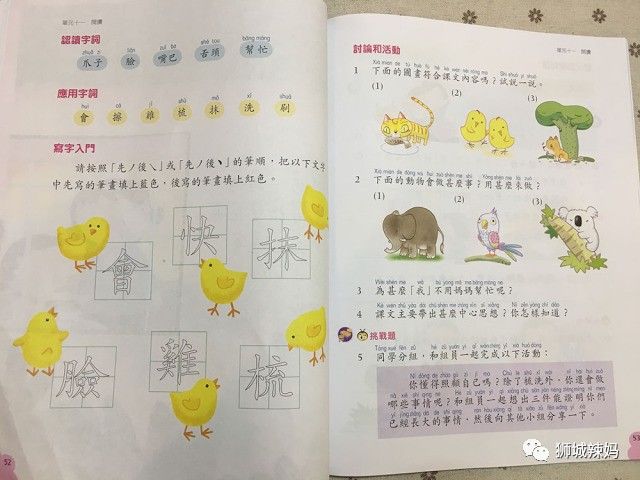 單元十一 閱讀
認讀字詞
zhuǎ zi liǎn zuǐ bā shé tou bāng máng
爪子 臉 嘴巴 舌頭 幫忙
應用字詞
huì cā jī shū mǒ xǐ shuā
會 擦 雞 梳 抹 洗 刷
寫字入門
請按照「先丿後㇏」或「先丿後丶」的筆順，把以下文字
中先寫的筆畫填上藍色，後寫的筆畫填上紅色。
會 快 抹
臉 雞 梳
52
單元十一 閱讀
討論和活動
1 下面的圖畫符合課文內容嗎？試說一說。
(1) (2) (3)
2 下面的動物會做甚麼事？用甚麼來做？
(1) (2) (3)
3 為甚麼「我」不用媽媽幫忙呢？
4 課文主要帶出甚麼中心思想？你怎樣知道？
挑戰題
5 同學分組，和組員一起完成以下活動：
你懂得照顧自己嗎？除了梳洗外，你還會做
哪些事情呢？和組員一起想出三件能證明你們
已經長大的事情，然後向其他小組分享一下。
53
狮城辣妈